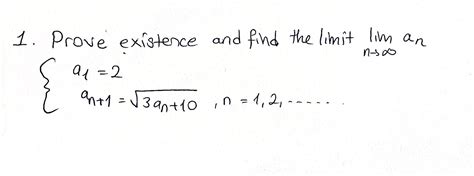 1. Prove existence and find the limit lim a_n
n→∞
{ a_1 = 2
a_{n+1} = √(3a_n+10) , n = 1, 2, ------.